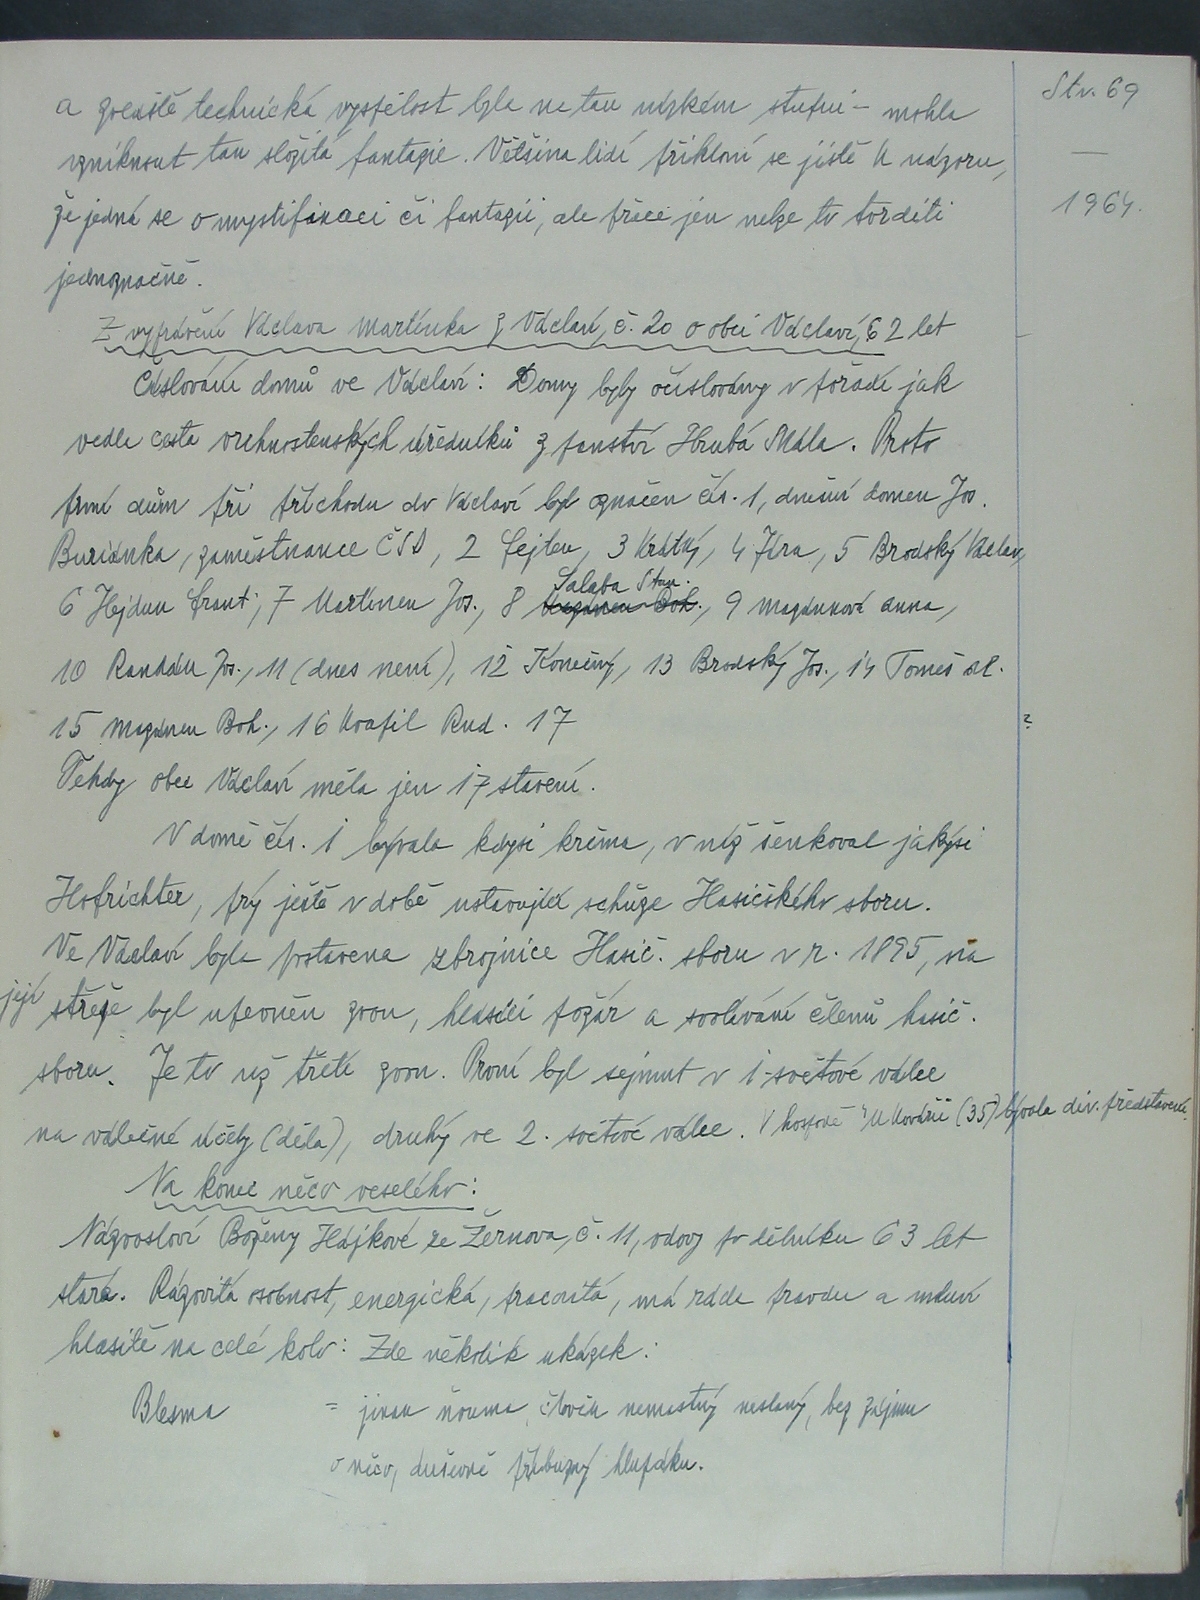 Str. 69
—
1964.
a zvláště technická vyspělost byla na tak nízkém stupni – mohla
vzniknout tak složitá fantazie. Většina lidí přikloní se jistě k názoru,
že jedná se o mystifikaci či fantazii, ale přece jen nelze to tvrditi
jednoznačně.
Z vyprávění Václava Martínka z Václaví, č. 20 o obci Václaví, 62 let
Číslování domů ve Václaví: Domy byly očíslovány v pořadí jak
vedla cesta vrchnostenských úředníků z panství Hrubá Skála. Proto
první dům při příchodu do Václaví byl označen čís. 1, dnešní domek Jos.
Buriánka, zaměstnance ČSD, 2 Fejfen, 3 Krátký, 4 Jíra, 5 Brodský Václav,
6 Hejduk Frant., 7 Martínek Jos., 8 Salaba Stan., 9 Magdunová Anna,
10 Jos., 11 (dnes není), 12 Konečný, 13 Brodský Jos., 14 Tomeš al.
15 Boh., 16 Kvapil Rud. 17 ?
Tehdy obec Václaví měla jen 17 stavení.
V domě čís. 1 bývala kdysi krčma, v níž šenkoval jakýsi
Hofrichter, prý ještě v době ustavující schůze Hasičského sboru.
Ve Václaví byla postavena zbrojnice Hasič. sboru v r. 1895, na
její střeše byl upevněn zvon, hlásící požár a svolávání členů hasič.
sboru. Je to už třetí zvon. První byl sejmut v 1. světové válce
na válečné účely (děla), druhý ve 2. světové válce. V hospodě "U Kovářů" (35) bývala div. představení.
Na konec něco veselého:
Názvosloví Boženy Hájkové ze Žernova, č. 11, vdovy po dělníku 63 let
stará. Rázovitá osobnost, energická, pracovitá, má ráda pravdu a mluví
hlasitě na celé kolo: Zde několik ukázek:
Blesma = jinak ňouma, člověk nemastný neslaný, bez zájmu
o něco, duševně příbuzný hlupáku.